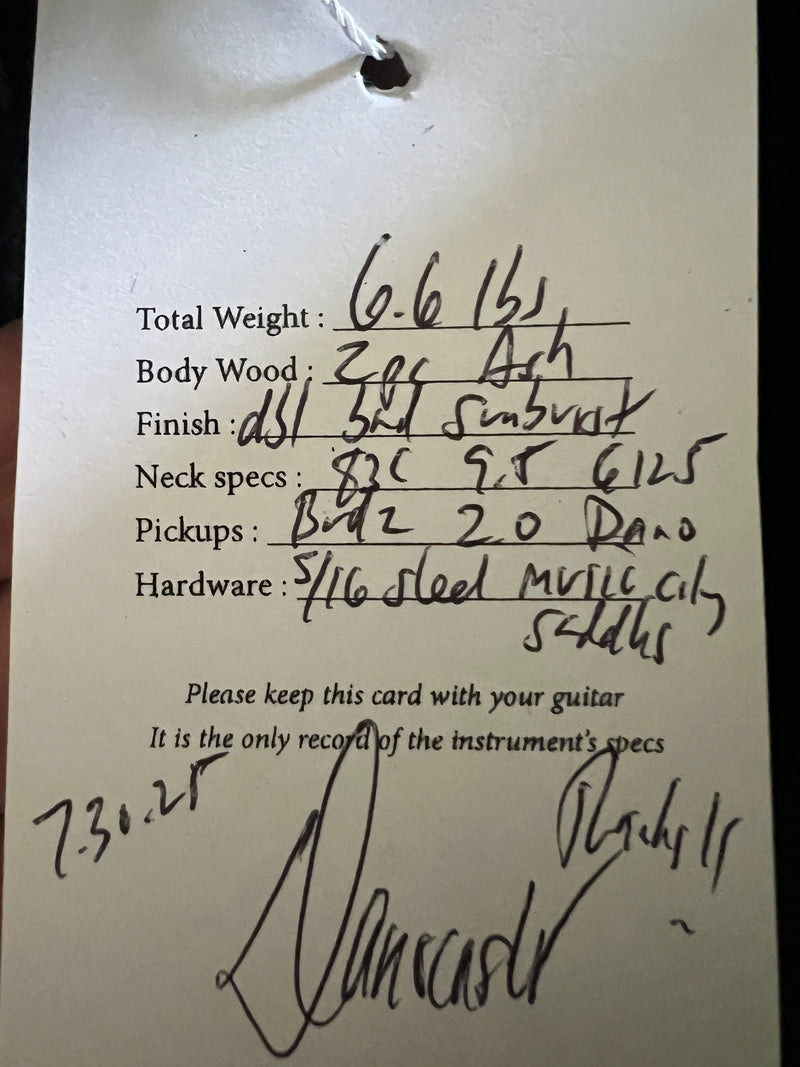 Total Weight : 6.6 lbs
Body Wood : 2 pc Ash
Finish : dbl bnd Sunburst
Neck specs : 83C 9.5 6125
Pickups : 2.0 Dano
Hardware : 5/16 steel Music City
Saddles
Please keep this card with your guitar
It is the only record of the instrument's specs
7.30.25
Thanks !!
Danocaster